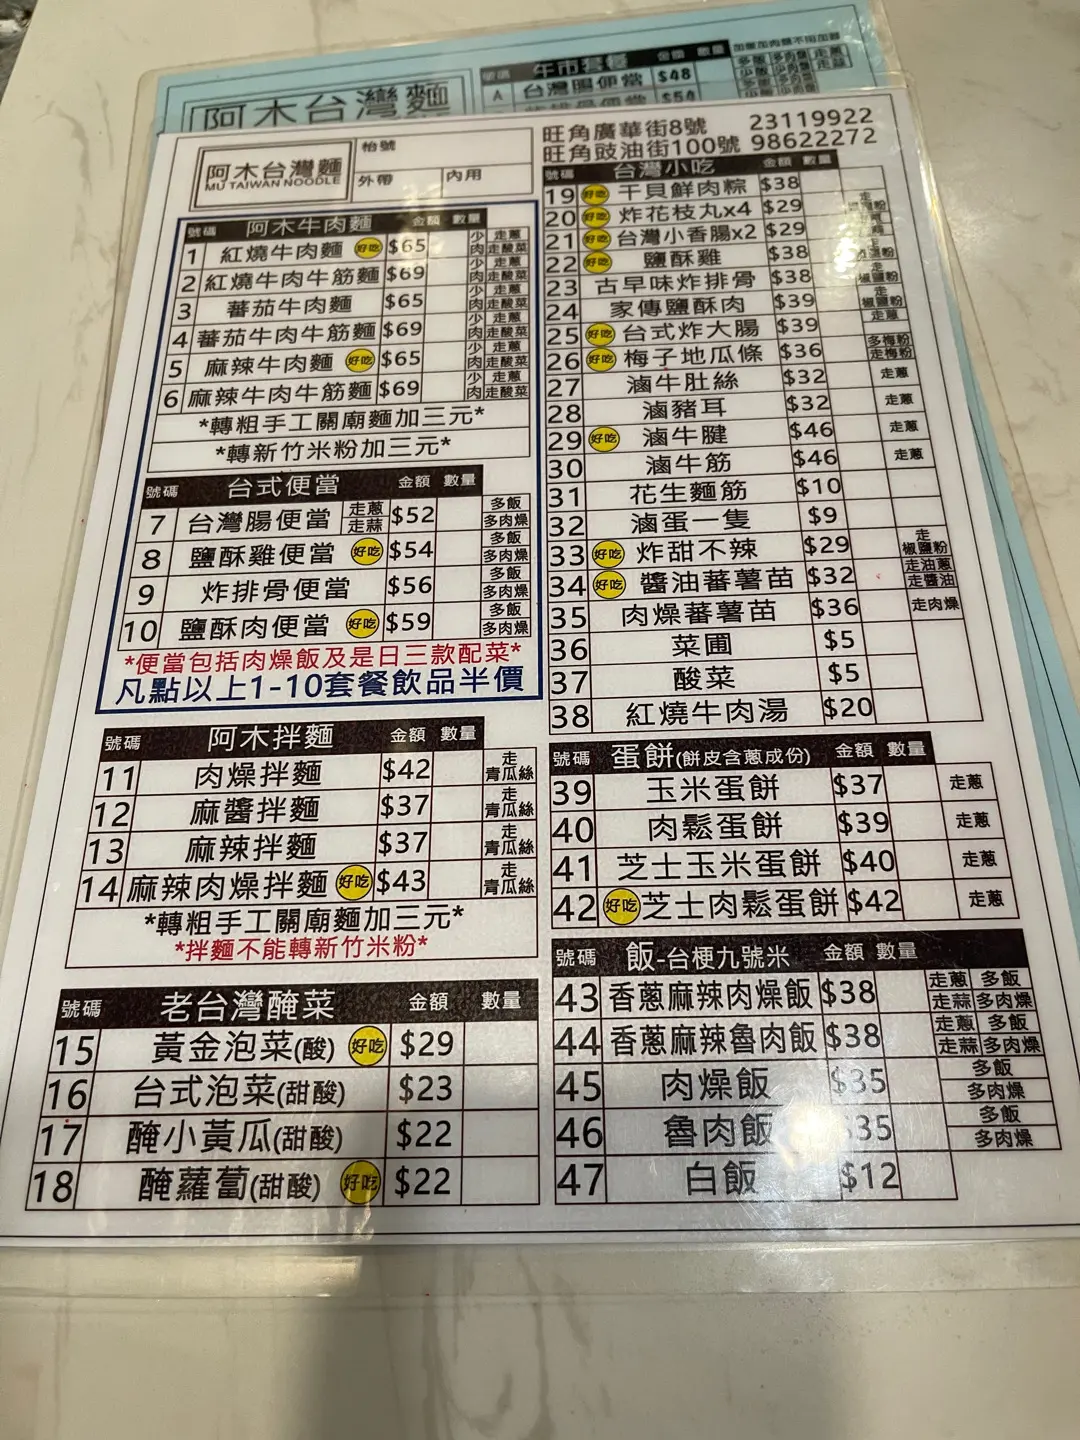 阿木台灣麵
午市套餐 金額 數量
A 台灣腸便當 $48
$54
旺角廣華街8號 23119922
旺角豉油街100號 98622272
阿木台灣麵
MU TAIWAN NOODLE
枱號
外帶 內用
號碼 阿木牛肉麵 金額 數量
1 紅燒牛肉麵 好吃 $65 少肉 走蔥 走酸菜
2 紅燒牛肉牛筋麵 $69 少肉 走蔥 走酸菜
3 蕃茄牛肉麵 $65 少肉 走蔥 走酸菜
4 蕃茄牛肉牛筋麵 $69 少肉 走蔥 走酸菜
5 麻辣牛肉麵 好吃 $65 少肉 走蔥 走酸菜
6 麻辣牛肉牛筋麵 $69 少肉 走蔥 走酸菜
*轉粗手工關廟麵加三元*
*轉新竹米粉加三元*
號碼 台式便當 金額 數量
7 台灣腸便當 走蔥 走蒜 $52 多飯 多肉燥
8 鹽酥雞便當 好吃 $54 多飯 多肉燥
9 炸排骨便當 $56 多飯 多肉燥
10 鹽酥肉便當 好吃 $59 多飯 多肉燥
*便當包括肉燥飯及是日三款配菜*
凡點以上1-10套餐飲品半價
號碼 阿木拌麵 金額 數量
11 肉燥拌麵 $42 走青瓜絲
12 麻醬拌麵 $37 走青瓜絲
13 麻辣拌麵 $37 走青瓜絲
14 麻辣肉燥拌麵 好吃 $43 走青瓜絲
*轉粗手工關廟麵加三元*
*拌麵不能轉新竹米粉*
號碼 老台灣醃菜 金額 數量
15 黃金泡菜(酸) 好吃 $29
16 台式泡菜(甜酸) $23
17 醃小黃瓜(甜酸) $22
18 醃蘿蔔(甜酸) 好吃 $22
號碼 台灣小吃 金額 數量
19 好吃 干貝鮮肉粽 $38
20 好吃 炸花枝丸x4 $29
21 好吃 台灣小香腸x2 $29
22 好吃 鹽酥雞 $38
23 古早味炸排骨 $38 走椒鹽粉
24 家傳鹽酥肉 $39 走椒鹽粉
25 好吃 台式炸大腸 $39 走蔥
26 好吃 梅子地瓜條 $36 多梅粉 走梅粉
27 滷牛肚絲 $32 走蔥
28 滷豬耳 $32 走蔥
29 好吃 滷牛腱 $46 走蔥
30 滷牛筋 $46 走蔥
31 花生麵筋 $10
32 滷蛋一隻 $9
33 好吃 炸甜不辣 $29 走椒鹽粉
34 好吃 醬油蕃薯苗 $32 走油蔥 走醬油
35 肉燥蕃薯苗 $36 走肉燥
36 菜圃 $5
37 酸菜 $5
38 紅燒牛肉湯 $20
號碼 蛋餅(餅皮含蔥成份) 金額 數量
39 玉米蛋餅 $37 走蔥
40 肉鬆蛋餅 $39 走蔥
41 芝士玉米蛋餅 $40 走蔥
42 好吃 芝士肉鬆蛋餅 $42 走蔥
號碼 飯-台梗九號米 金額 數量
43 香蔥麻辣肉燥飯 $38 走蔥 多飯 走蒜 多肉燥
44 香蔥麻辣魯肉飯 $38 走蔥 多飯 走蒜 多肉燥
45 肉燥飯 $35 多飯 多肉燥
46 魯肉飯 35 多飯 多肉燥
47 白飯 $12